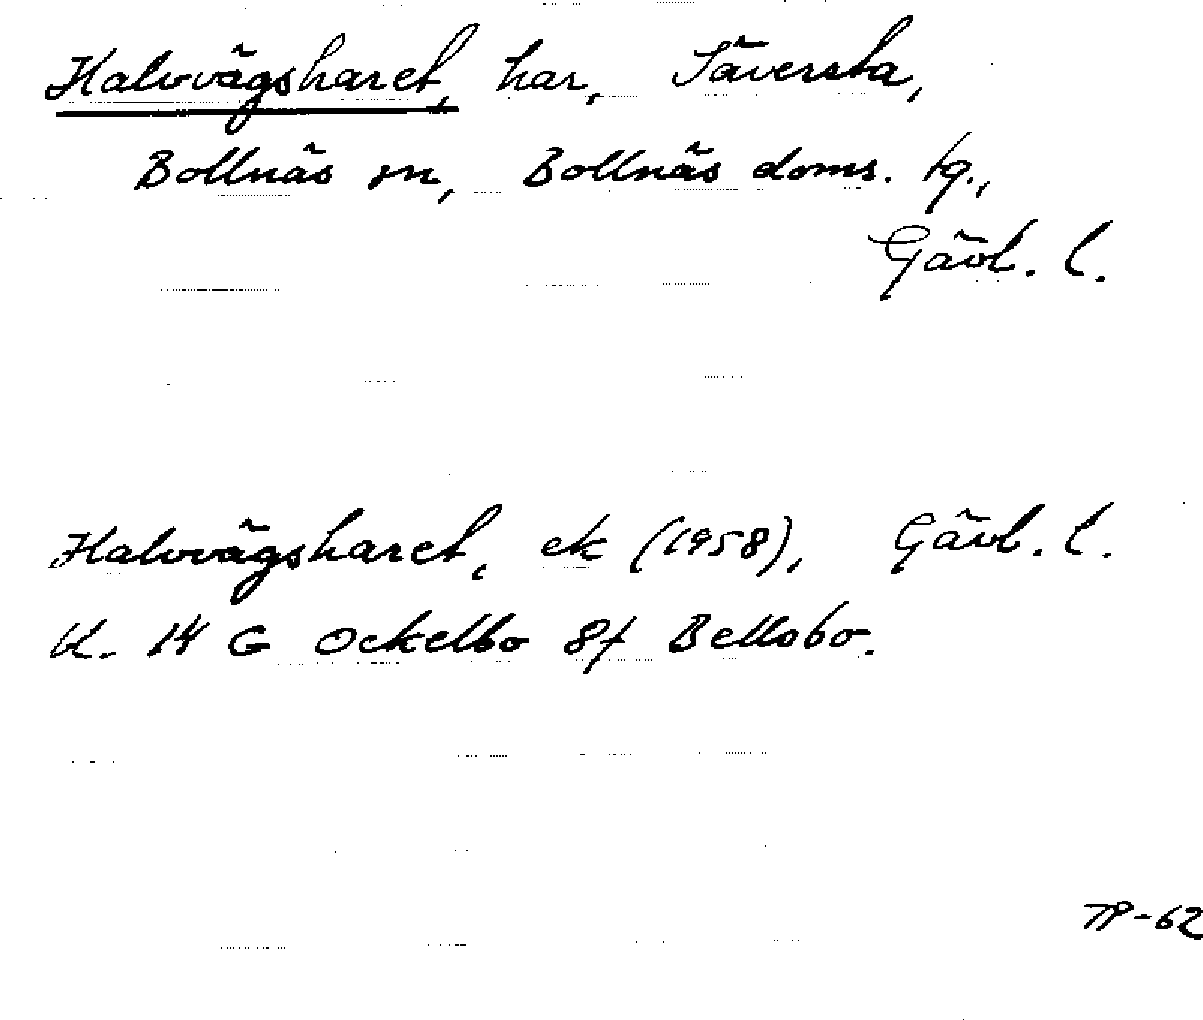 Halvvägsharet, har, Säversta,
Bollnäs sn, Bollnäs doms. tg.,
Gävl. l.
Halvvägsharet, ek (1958), Gävl. l.
kl. 14 G Ockelbo 8f Bellobo.
TP-62